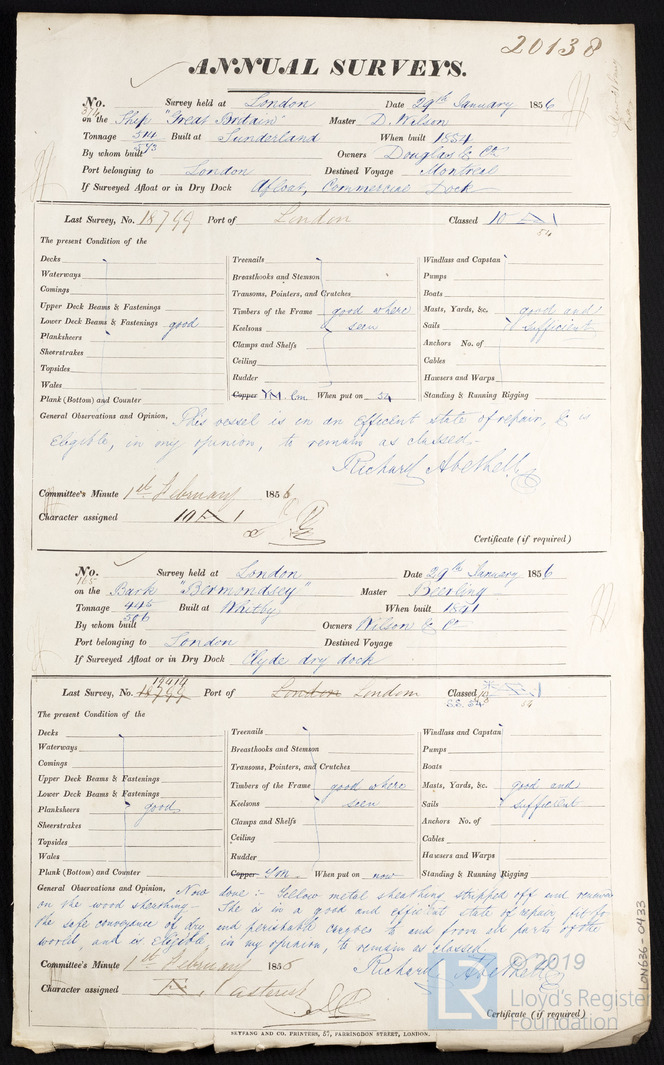 20138
ANNUAL SURVEYS.
No. Survey held at London Date 29th January 1856
on the Ship "Great Britain" Master D. Wilson
Tonnage 514 Built at Sunderland When built 1854
By whom built 543 Owners Douglas & Co
Port belonging to London Destined Voyage Montreal
If Surveyed Afloat or in Dry Dock Afloat, Commercial Dock
Last Survey, No. 18799 Port of London Classed 10 A 1
54
The present Condition of the
Decks
Waterways
Comings
Upper Deck Beams & Fastenings
Lower Deck Beams & Fastenings good
Planksheers
Sheerstrakes
Topsides
Wales
Plank (Bottom) and Counter
Treenails
Breasthooks and Stemson
Transoms, Pointers, and Crutches
Timbers of the Frame good where
Keelsons seen
Clamps and Shelfs
Ceiling
Rudder
Copper Y.M. When put on 54
Windlass and Capstan
Pumps
Boats
Masts, Yards, &c. good and
Sails sufficient
Anchors No. of
Cables
Hawsers and Warps
Standing & Running Rigging
General Observations and Opinion, This vessel is in an efficient state of repair, & is
eligible, in my opinion, to remain as classed.-
Richard Abethell
Committee's Minute 1st February 1856
Character assigned 10 A 1
Certificate (if required)
No. Survey held at London Date 29th January 1856
165
on the Bark "Bermondsey" Master Beerling
Tonnage 446 Built at Whitby When built 1841
By whom built 506 Owners Wilson & Co
Port belonging to London Destined Voyage
If Surveyed Afloat or in Dry Dock Clyde dry dock
19419
Last Survey, No. 18799 Port of London London Classed
54
The present Condition of the
Decks
Waterways
Comings
Upper Deck Beams & Fastenings
Lower Deck Beams & Fastenings
Planksheers good
Sheerstrakes
Topsides
Wales
Plank (Bottom) and Counter
Treenails
Breasthooks and Stemson
Transoms, Pointers, and Crutches
Timbers of the Frame good where
Keelsons seen
Clamps and Shelfs
Ceiling
Rudder
Copper Y.M. When put on now
Windlass and Capstan
Pumps
Boats
Masts, Yards, &c. good and
Sails sufficient
Anchors No. of
Cables
Hawsers and Warps
Standing & Running Rigging
General Observations and Opinion, Now done:- Yellow metal sheathing stripped off and renewed
on the wood sheathing- She is in a good and efficient state of repair, fit for
the safe conveyance of dry and perishable cargoes to and from all parts of the
world, and is eligible, in my opinion, to remain as classed
Richard Abethell
Committee's Minute 1st February 1856
Character assigned asterisk
Certificate (if required)
SEYFANG AND CO. PRINTERS, 57, FARRINGDON STREET, LONDON.
LON636-0433
LR © 2019
Lloyd's Register
Foundation